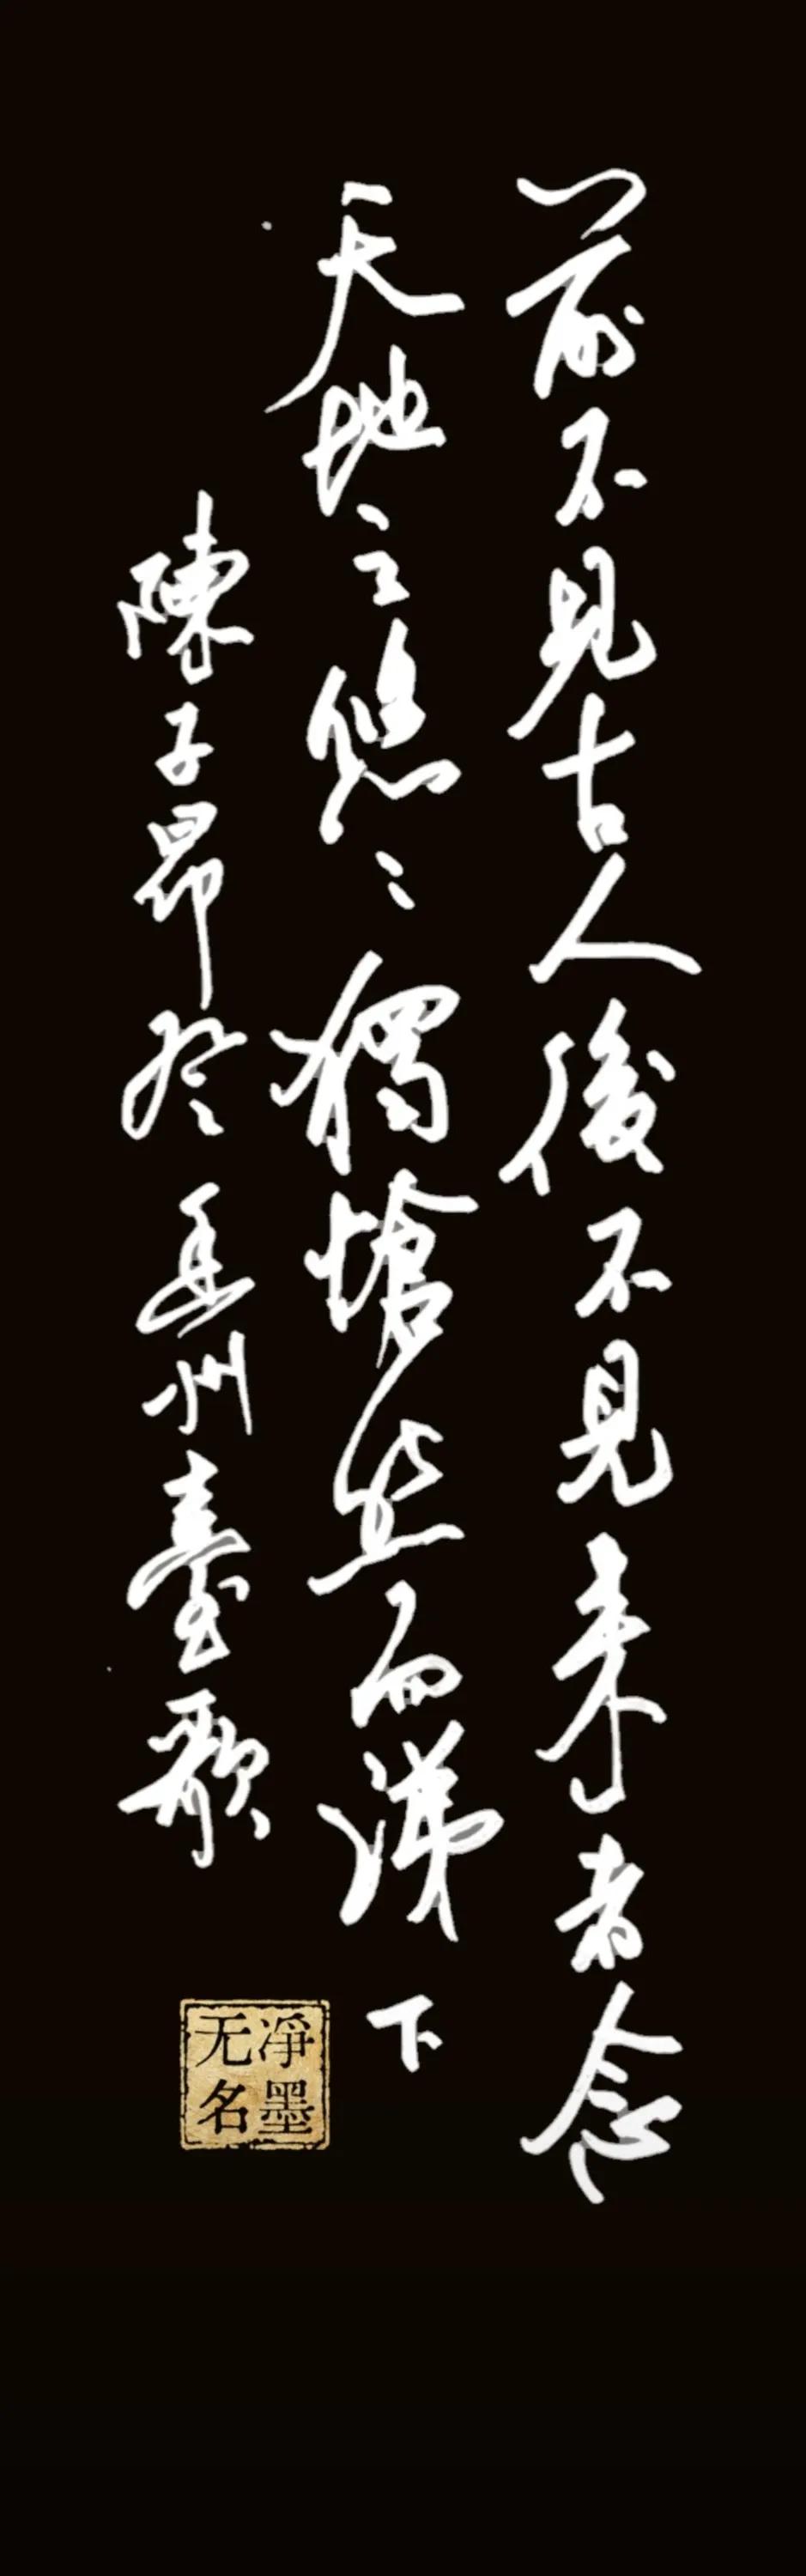 前不見古人後不見来者念
天地之悠〻獨愴然而涕下
陳子昂登幽州臺歌
净墨
无名